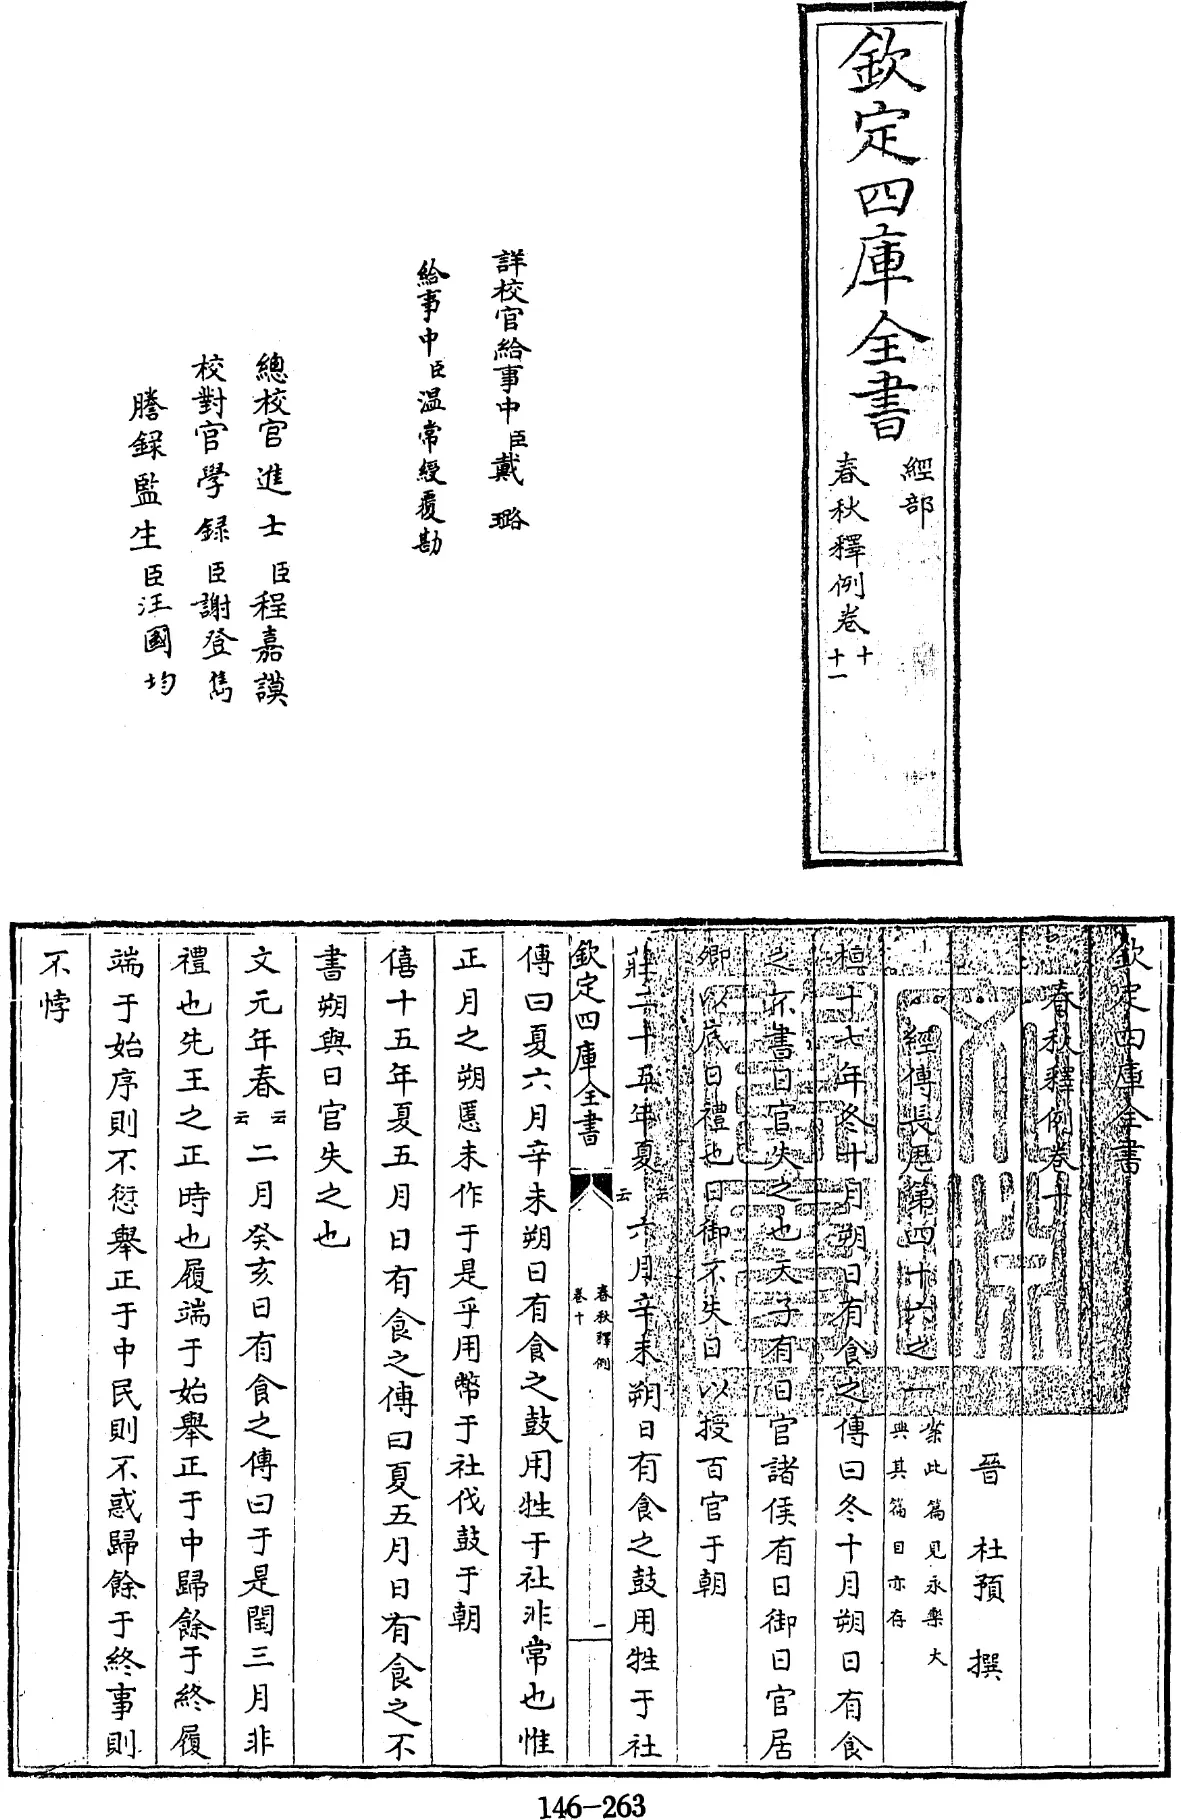 欽定四庫全書
經部
春秋釋例卷十
十一
詳校官給事中臣戴璐
給事中臣温常綬覆勘
總校官進士臣程嘉謨
校對官學録臣謝登雋
謄録監生臣汪國均
欽定四庫全書
春秋釋例卷十
晉杜預撰
經傳長厯第四十六之一
案此篇見永樂大
典其篇目亦存
桓十七年冬十月朔日有食之傳曰冬十月朔日有食
之不書日官失之也天子有日官諸侯有日御日官居
卿以底日禮也日御不失日以授百官于朝
莊二十五年夏云云六月辛未朔日有食之鼓用牲于社
欽定四庫全書
春秋釋例
卷十
一
傳曰夏六月辛未朔日有食之鼓用牲于社非常也惟
正月之朔慝未作于是乎用幣于社伐鼓于朝
僖十五年夏五月日有食之傳曰夏五月日有食之不
書朔與日官失之也
文元年春云云二月癸亥日有食之傳曰于是閏三月非
禮也先王之正時也履端于始舉正于中歸餘于終履
端于始序則不愆舉正于中民則不惑歸餘于終事則
不悖
146-263